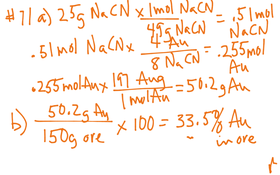 #71 a) 25g NaCN × 1mol NaCN / 49g NaCN = .51mol NaCN
.51mol NaCN × 4 Au / 8 NaCN = .255mol Au
.255mol Au × 197 Aug / 1 mol Au = 50.2g Au
b) 50.2g Au / 150g ore × 100 = 33.5% Au in ore